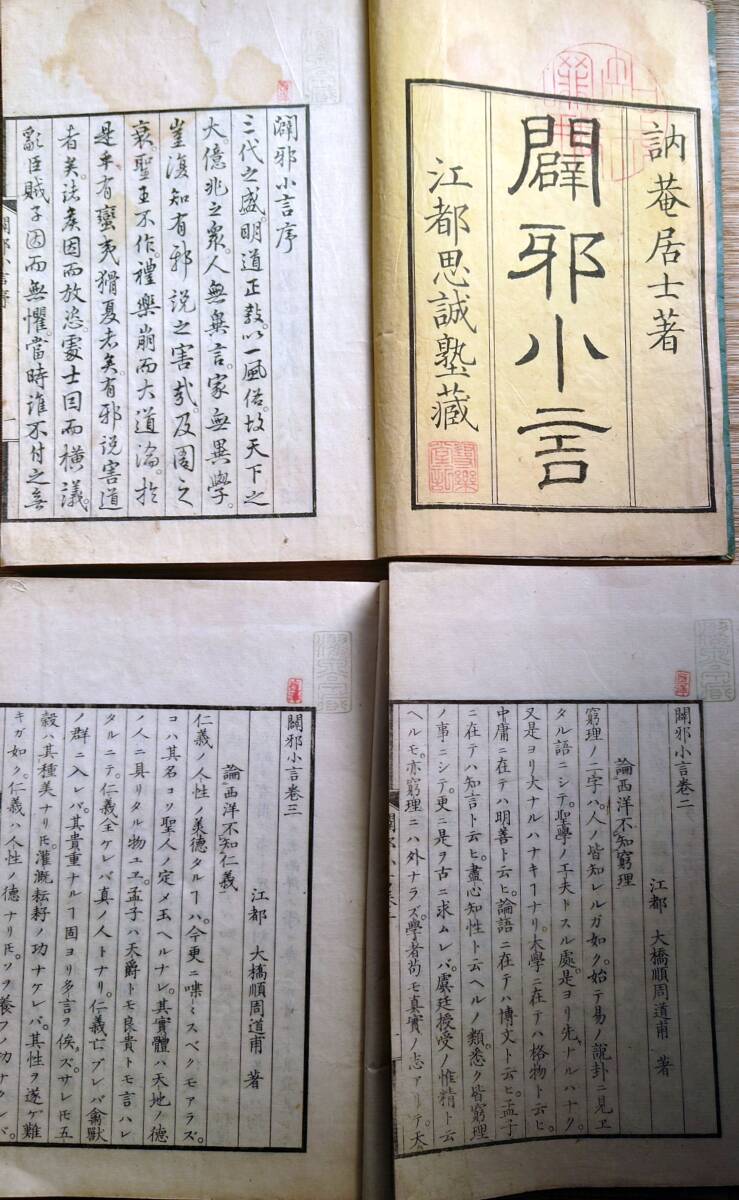 訥菴居士著
闢邪小言
江都思誠塾藏
闢邪小言序
三代之盛。明道正教。以一風俗。故天下之
大。億兆之衆。人無異言。家無異學。
豈復知有邪說之害哉。及周之
衰。聖王不作。禮樂崩而大道淪。於
是乎有蠻夷猾夏者矣。有邪説害道
者矣。諸矦因而放恣。處士因而横議。
亂臣賊子因而無懼。當時誰不付之無
闢邪小言卷二
江都 大橋順周道甫 著
論西洋不知窮理
窮理ノ二字ハ。人ノ皆知レルガ如ク。始テ易ノ說卦ニ見エ
タル語ニシテ。聖學ノ工夫トスル處。是ヨリ先ナルハナク。
又是ヨリ大ナルハナキヿナリ。大學ニ在テハ格物ト云ヒ。
中庸ニ在テハ明善ト云ヒ。論語ニ在テハ博文ト云ヒ。孟子
ニ在テハ知言ト云ヒ。盡心知性ト云ヘルノ類。悉ク皆窮理
ノ事ニシテ。更ニ是ヲ古ニ求ムレバ。虞廷授受ノ惟精ト云
ヘルモ。亦窮理ニハ外ナラズ。學者苟モ真實ノ志アリテ。天
闢邪小言卷三
江都 大橋順周道甫 著
論西洋不知仁義
仁義ノ人性ノ美德タルヿハ。今更ニ喋々スベクモアラズ。
コハ其名コソ聖人ノ定メ玉ヘルナレ。其實體ハ天地ノ德
ノ人ニ具リタル物ユエ。孟子ハ天爵トモ良貴トモ言ハレ
タルニテ。仁義全ケレバ真ノ人トナリ。仁義亡ブレバ禽獸
ノ群ニ入レバ。其貴重ナルヿ固ヨリ多言ヲ俟ズ。サレ𪜈五
穀ハ其種美ナリ𪜈。灌漑耘耔ノ功ナケレバ。其性ヲ遂ゲ難
キガ如ク。仁義ハ人性ノ德ナリ𪜈。ソヲ養フノ功ナクバ。